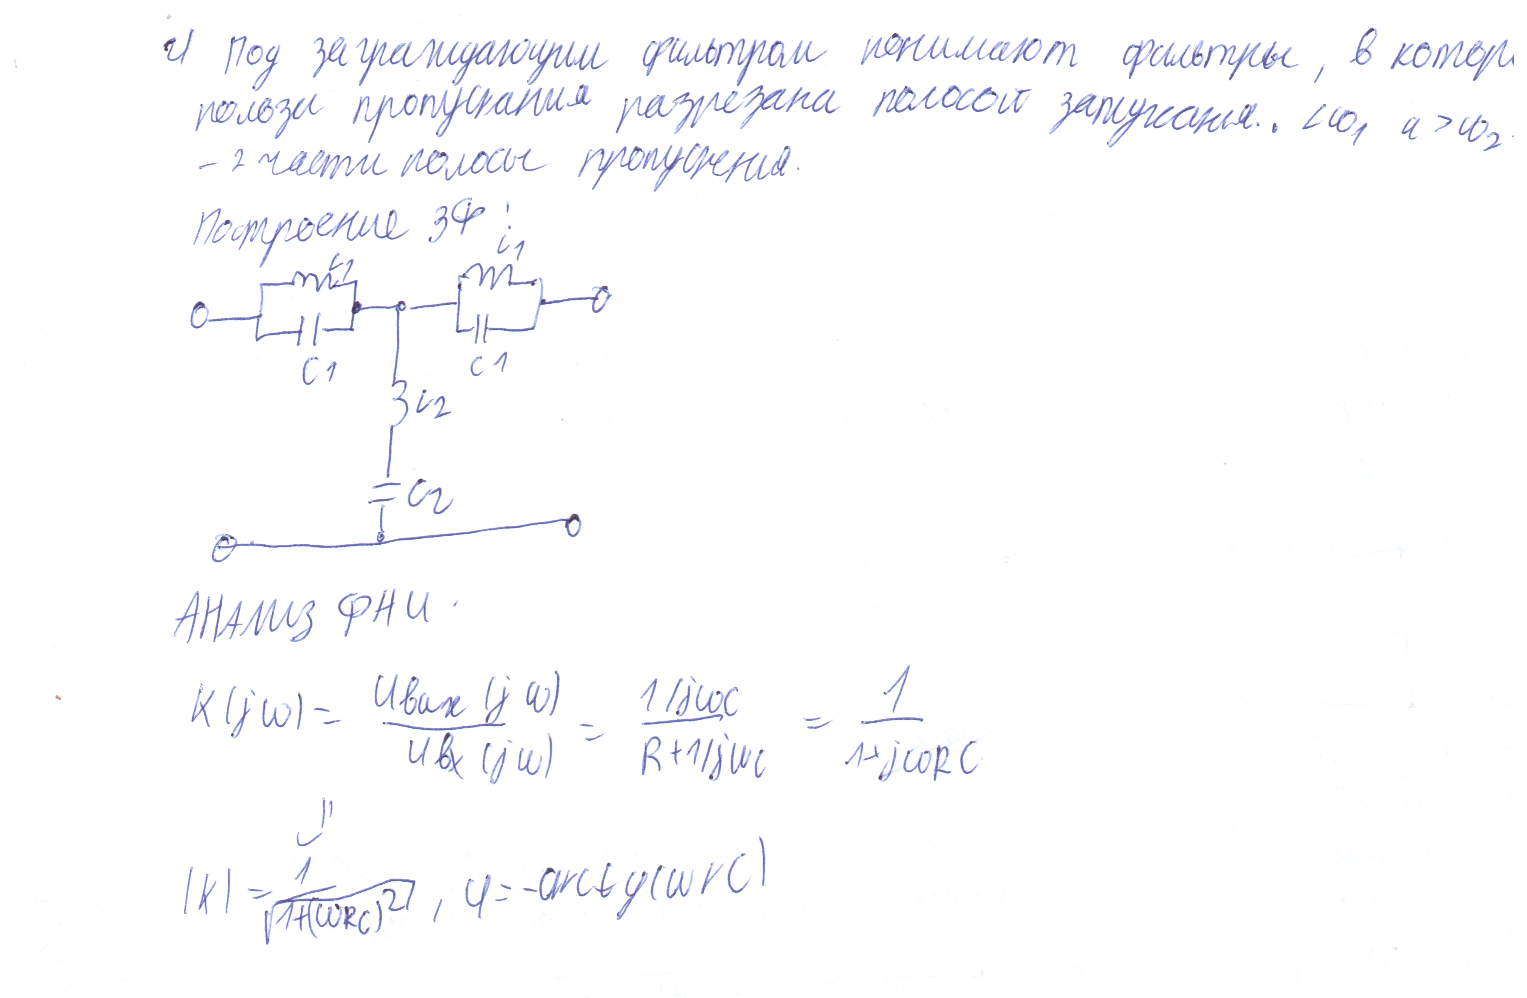 г) Под заграждающим фильтром понимают фильтры, в котор
полоза пропускания разрезана полосой затухания.. <ω1 и >ω2.
– 2 части полосы пропускния.
Построение ЗФ:
L1 L1
C1 C1
L2
C2
АНАЛИЗ ФНЧ.
K(jω) = Uвых(jω) / Uвх(jω) = 1/jωC / R+1/jωC = 1 / 1+jωRC
|K| = 1 / √1+(ωRC)², φ=-arctg(ωrC)